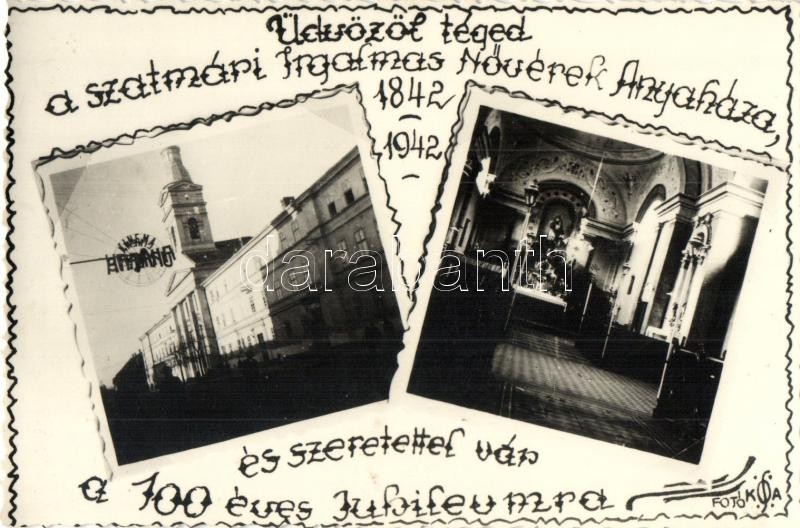 Üdvözöl téged
a szatmári Irgalmas Nővérek Anyaháza,
1842
1942
darabanth
és szeretettel vár
a 100 éves Jubileumra
FOTÓ KÓSA